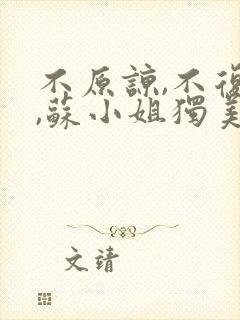 不原諒,不復
,蘇小姐獨美
文靖